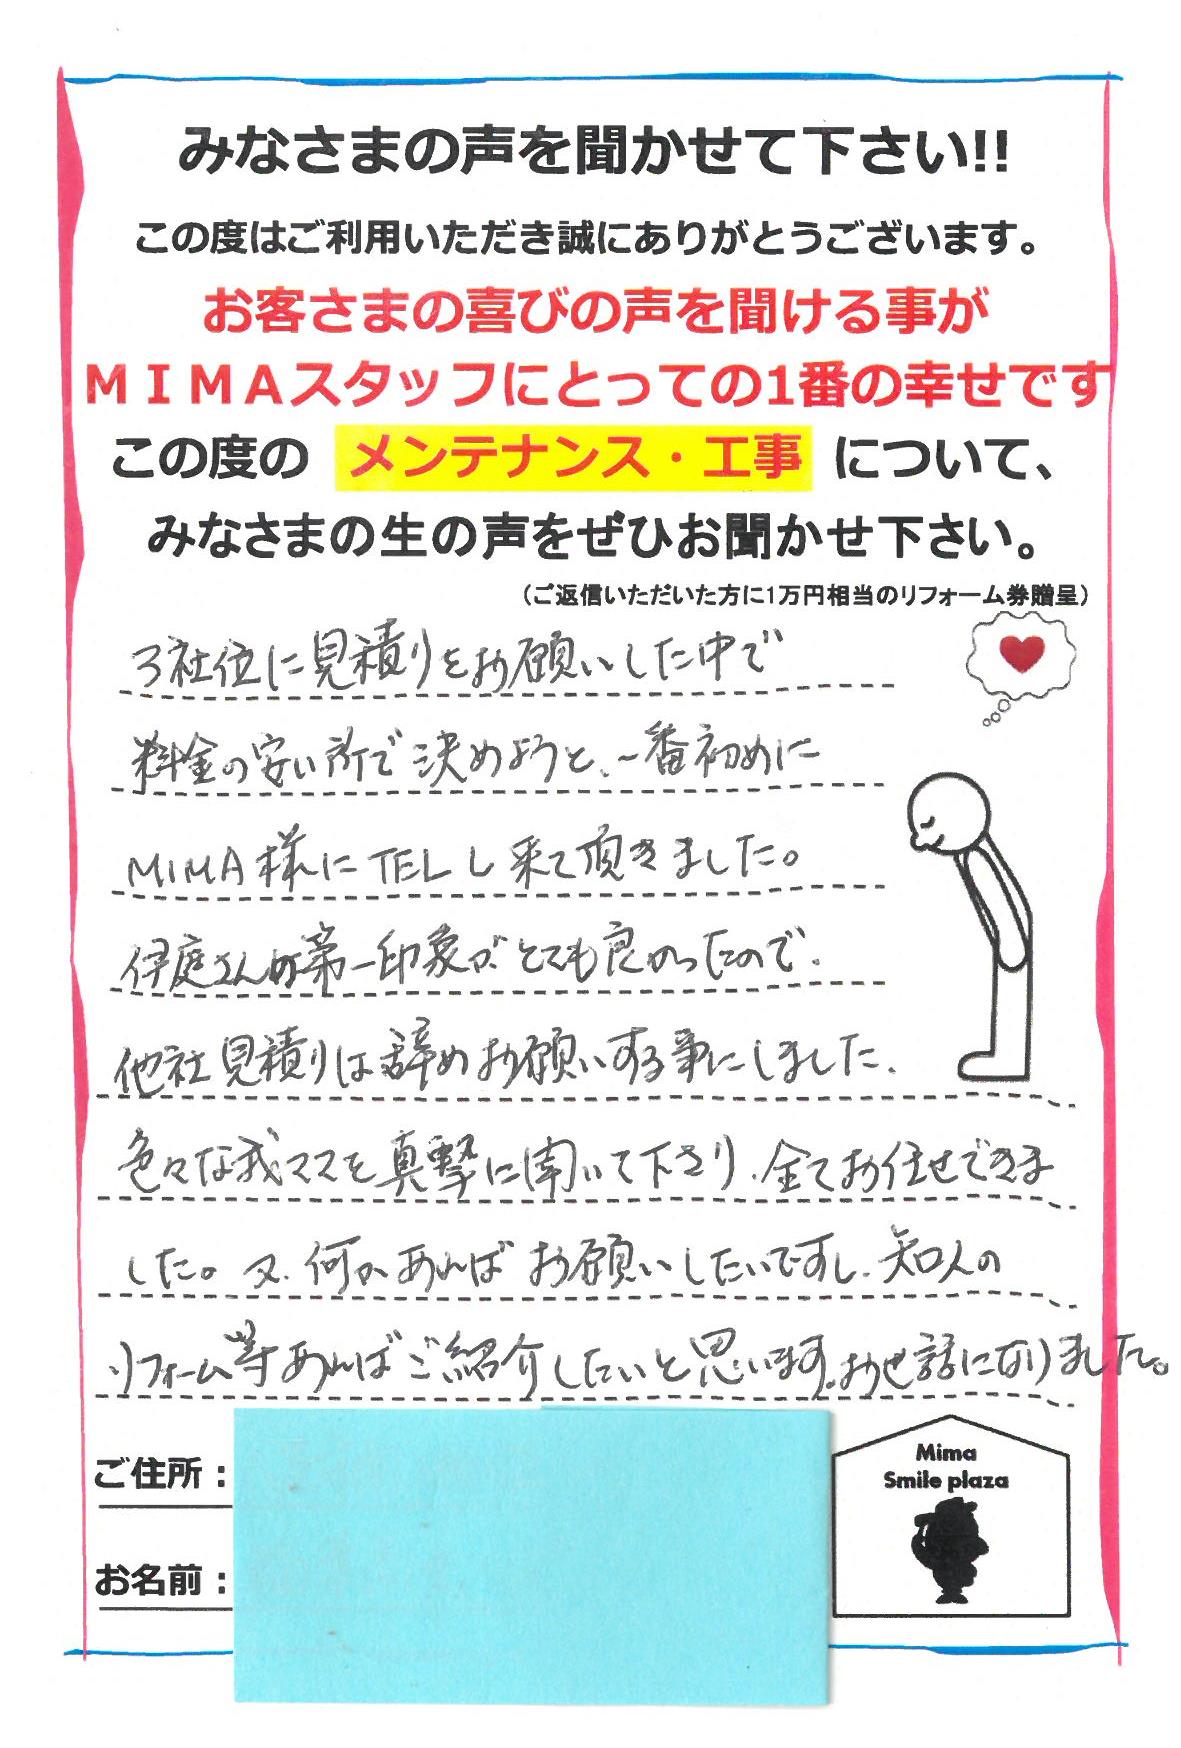 みなさまの声を聞かせて下さい!!
この度はご利用いただき誠にありがとうございます。
お客さまの喜びの声を聞ける事が
ＭＩＭＡスタッフにとっての1番の幸せです
この度の メンテナンス・工事 について、
みなさまの生の声をぜひお聞かせ下さい。
（ご返信いただいた方に1万円相当のリフォーム券贈呈）
3社位に見積りをお願いした中で
料金の安い所で決めようと、一番初めに
MIMA様にTELし来て頂きました。
伊庭さんの第一印象が、とても良かったので、
他社見積りは辞めお願いする事にしました。
色々な我ママを真摯に聞いて下さり、全てお任せできま
した。又、何かあればお願いしたいですし、知人の
リフォーム等あればご紹介したいと思います。お世話になりました。
ご住所：
お名前：
Mima
Smile plaza